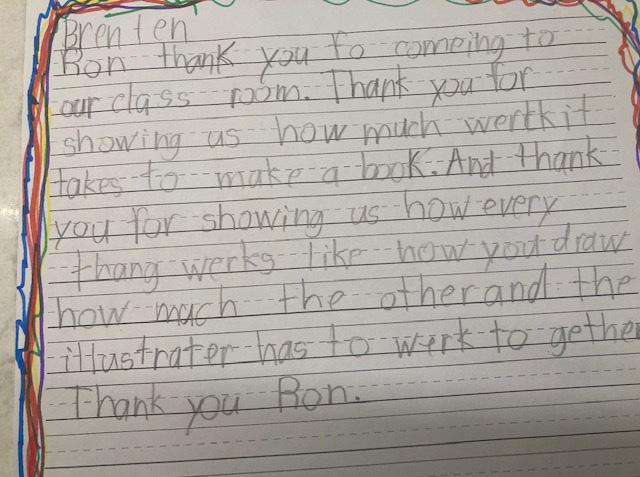 Brenten
Ron thank you fo comeing to
our class room. Thank you for
showing us how much wertkit
takes to make a book. And thank
you for showing us how every
thang werks like how you draw
how much the other and the
illustrater has to werk to gether
Thank you Ron.